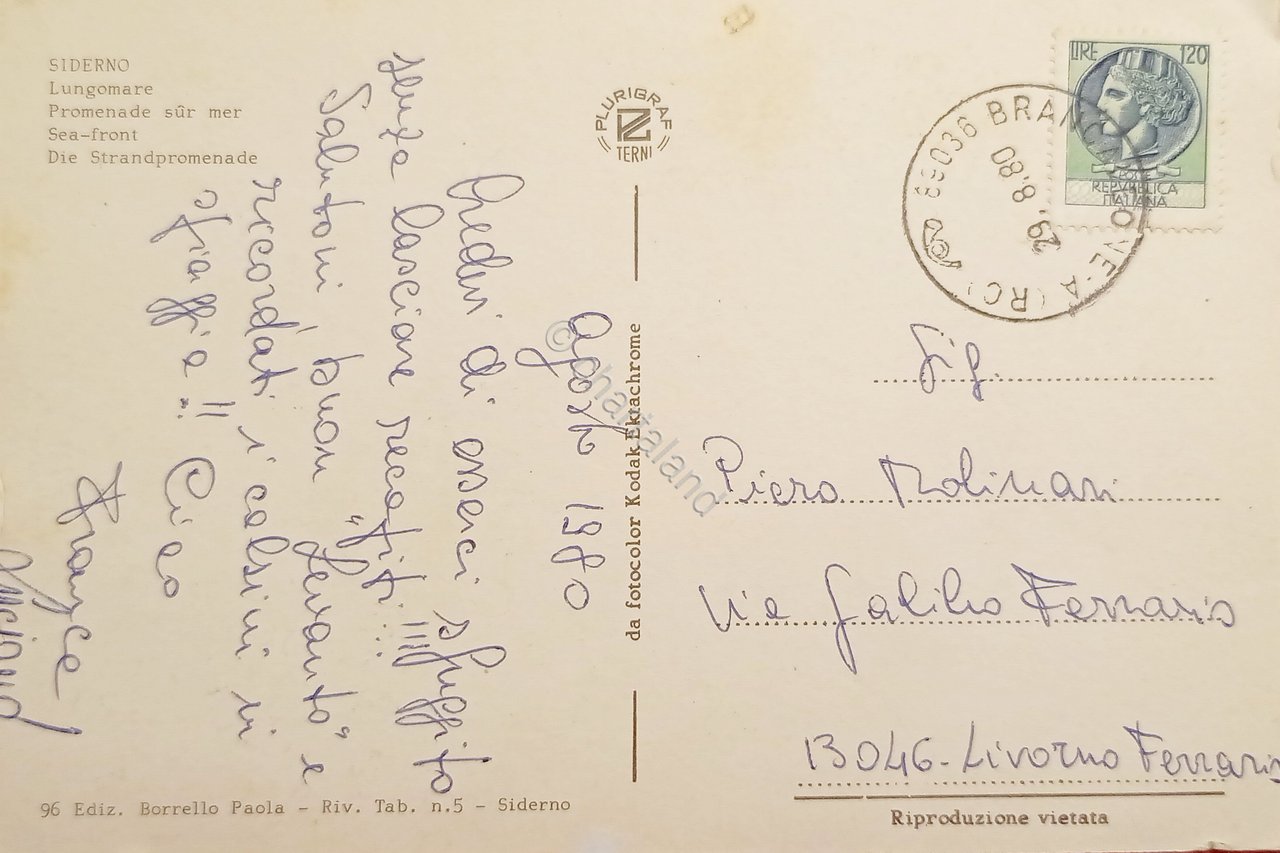 SIDERNO
Lungomare
Promenade sûr mer
Sea-front
Die Strandpromenade
PLURIGRAF
TERNI
LIRE 120
POSTE
REPVBBLICA
ITALIANA
89036 BRANCALEONE-A (RC)
29.8.80
Agosto 1980
Credevi di esserci sfuggito
senza lasciare recapiti!!!
Salutoni buon "Levanto" e
ricordati i calsini in
Ciao
da fotocolor Kodak Ektachrome
© chartaland
Sig.
Piero Molinari
Via Galileo Ferraris
13046-Livorno Ferraris
96 Ediz. Borrello Paola - Riv. Tab. n.5 - Siderno
Riproduzione vietata